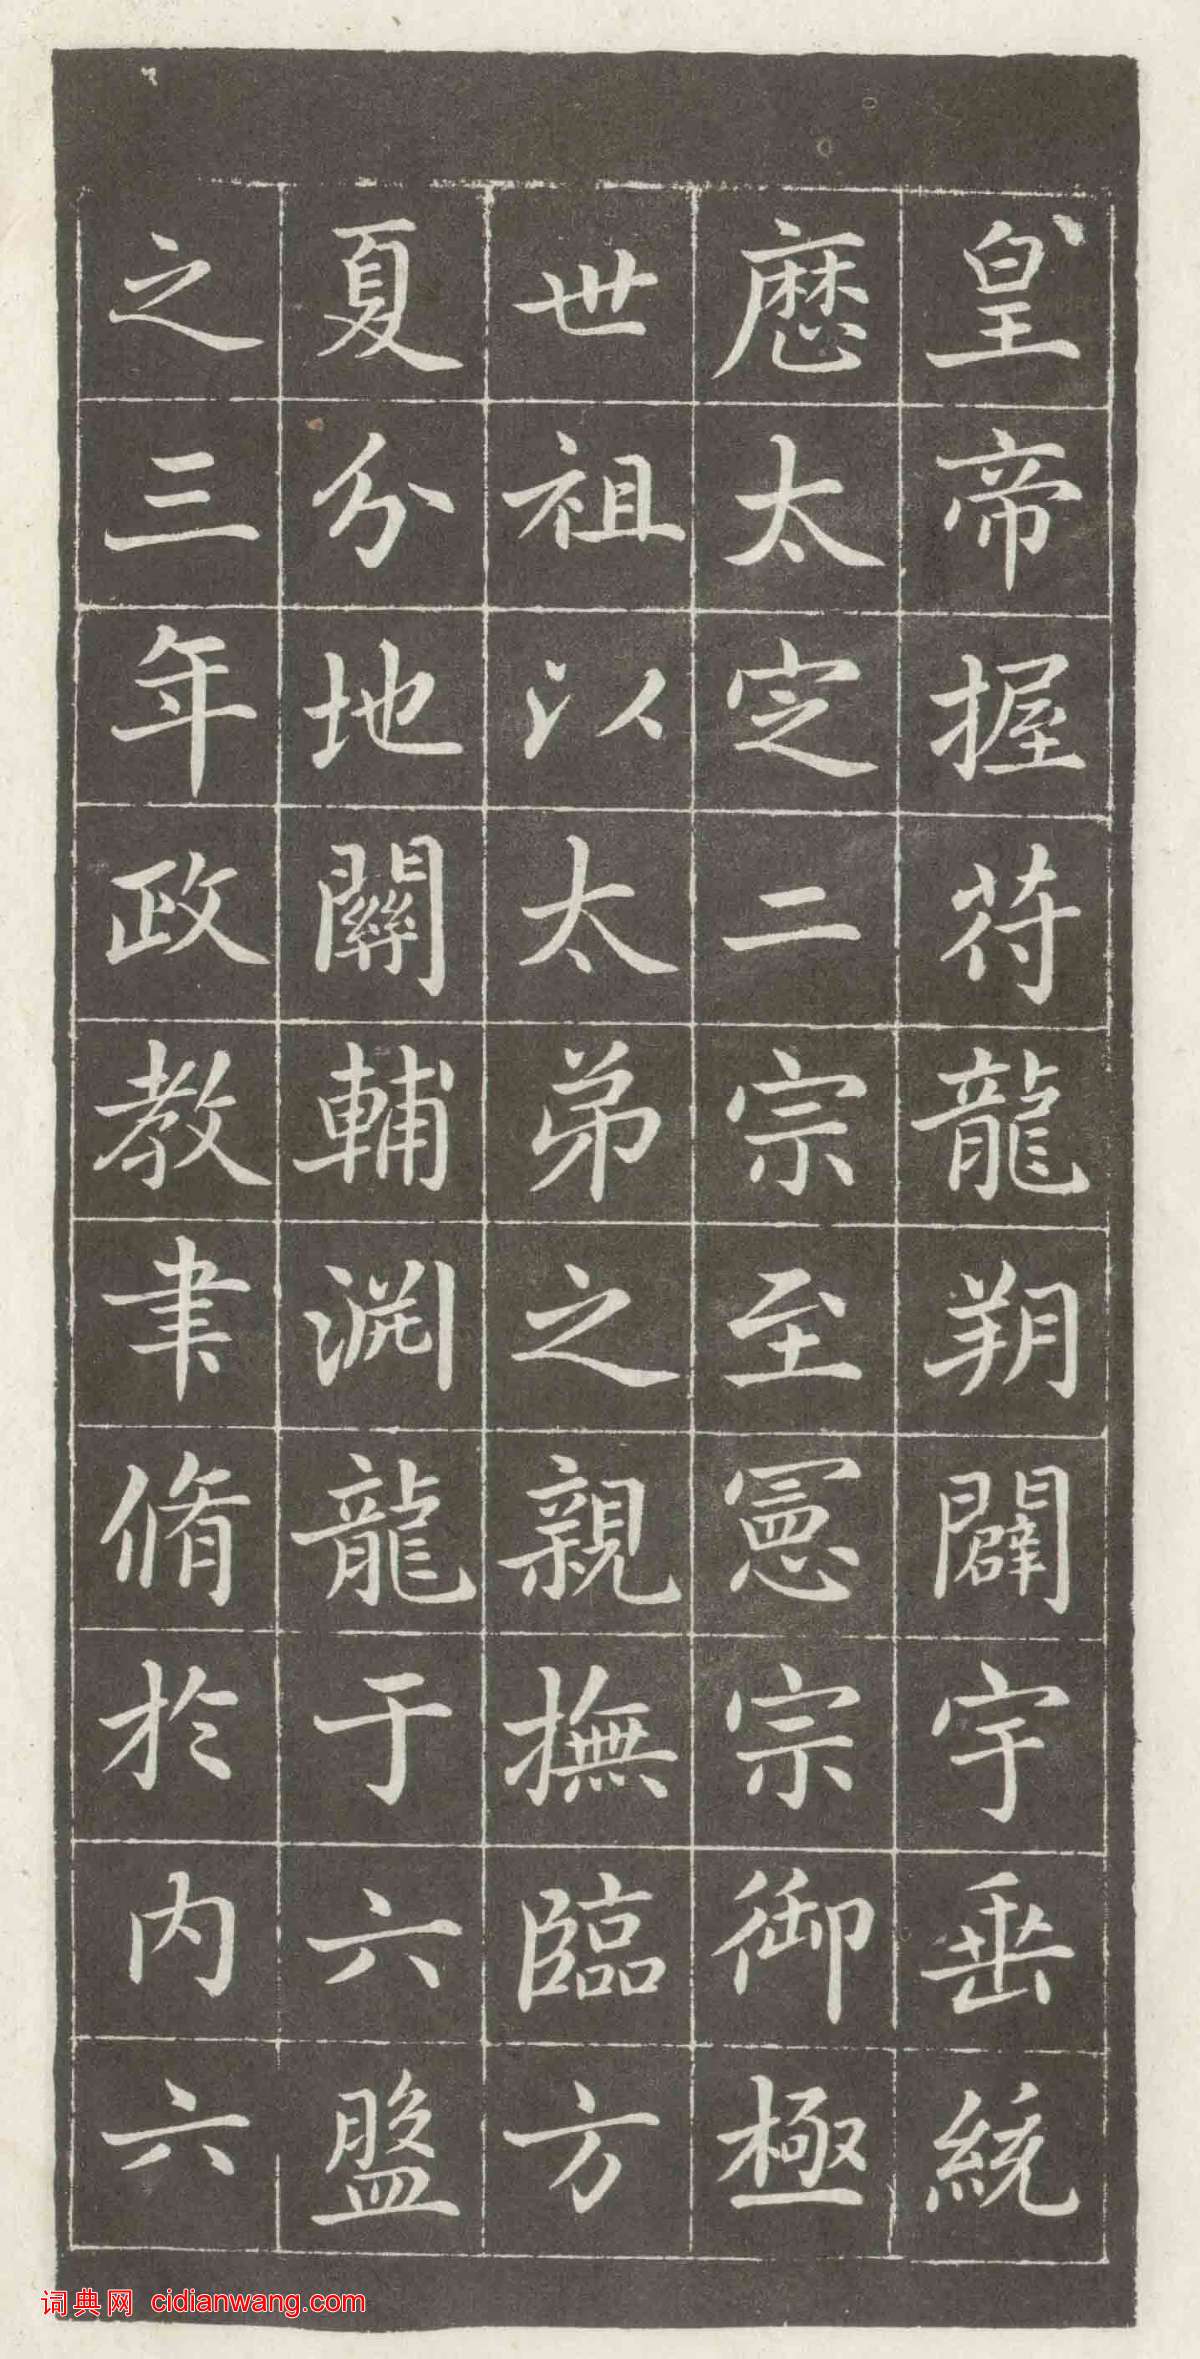 皇帝握苻龍朔闢宇垂統
厯太定二宗至憲宗御極
世祖以太弟之親撫臨方
夏分地關輔淵龍于六盤
之三年政教聿脩於内六
词典网 cidianwang.com